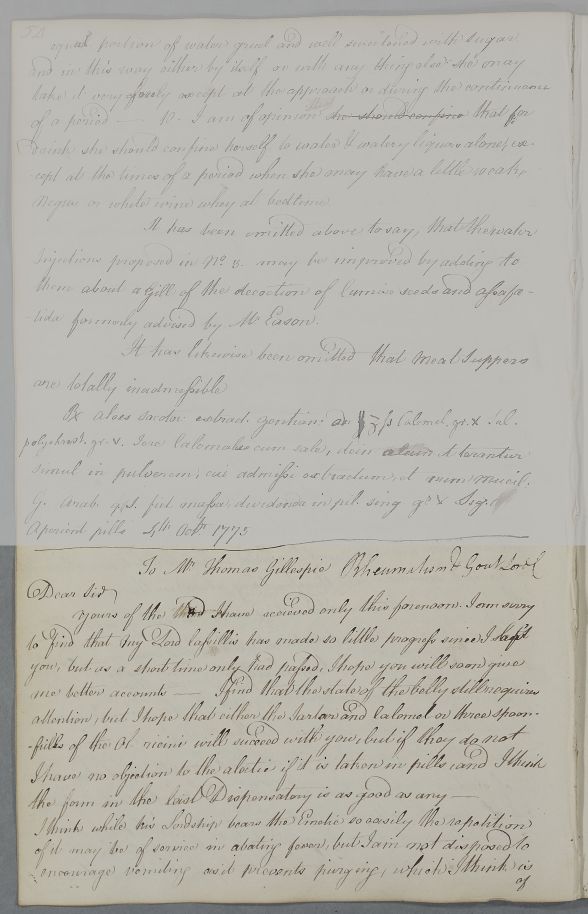 50
equal portion of water gruel and well sweetened with sugar
and in this way either by itself or with any thing else she may
take it very freely except at the approach or during the continuance
of a period — 10. I am of opinion she should confine that for
drink she should confine herself to water & watery liquors alone, ex-
-cept at the times of a period when she may have a little weak
negus or white wine whey at bedtime
It has been omitted above to say, that the water
injections proposed in No 8. may be improved by adding to
them about a Gill of the decoction of Cumin seeds and assafæ-
-tida formerly advised by Mr Eason.
It has likewise been omitted that meat Suppers
are totally inadmissible
Rx aloes socotor. extract. gentian: aa ʒſs Calomel. gr. x Sal.
polychrest. gr. x. Tere Calomel cum sale, dein terantur
simul in pulverem, cui admisce extractum, et cum mucil.
G. arab. q.s. fiat massa, dividenda in pil. sing gr. x Sig.
Aperient pills 4th Octr. 1775
To Mr Thomas Gillespie Rheumatism & Gout Lord C
Dear Sir
Yours of the I have received only this forenoon. I am sorry
to find that my Lord Cassillis has made so little progress since I left
you, but as a short time only had passed, I hope you will soon give
me better accounts — I find that the state of the belly still requires
attention, but I hope that either the Tartar and Calomel or three spoon-
-fulls of the Ol. ricini will succeed with you, but if they do not
I have no objection to the aloetic if it is taken in pills, and I think
the form in the last Dispensatory is as good as any —
I think while his Lordship bears the Emetic so easily the repetition
of it may be of service in abating fever, but I am not disposed to
encourage vomiting as it prevents purging, which I think is
of